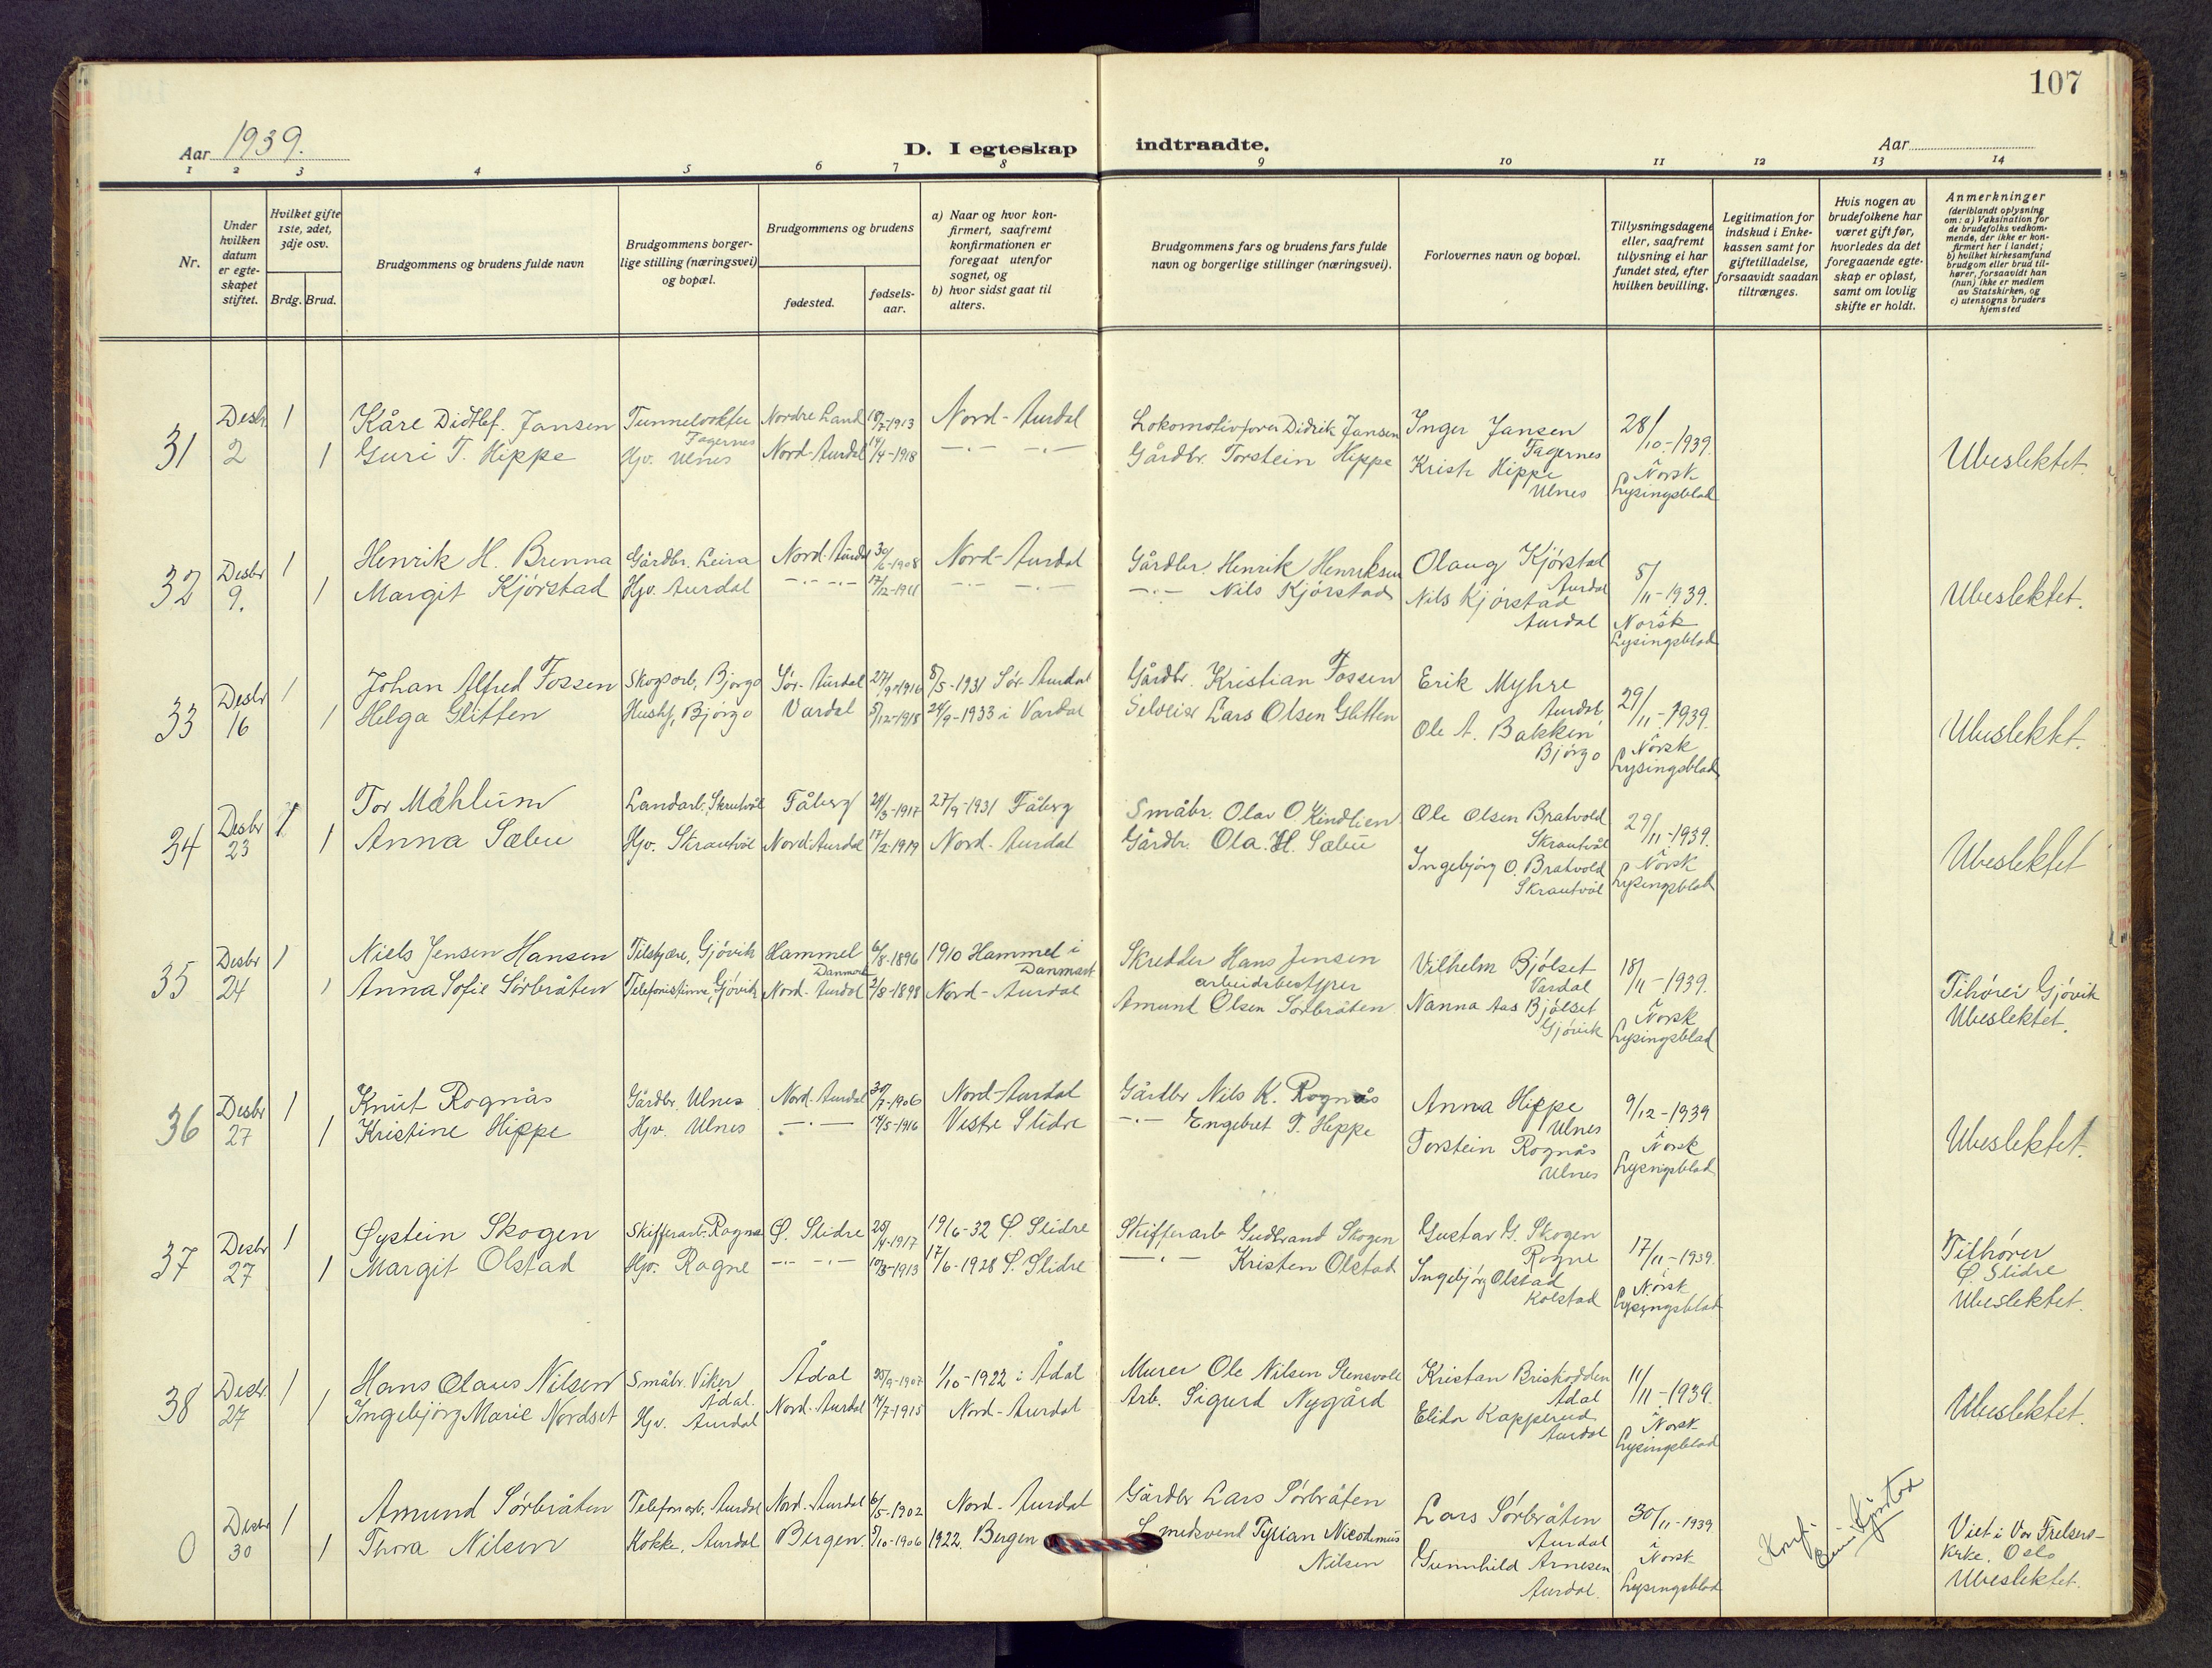 107
Aar 1939.
D. I egteskap indtraadte.
Aar
1 2 3 4 5 6 7 8 9 10 11 12 13 14
Nr.
Under hvilken datum er egteskapet stiftet.
Hvilket gifte 1ste, 2det, 3dje osv.
Brdg. Brud.
Brudgommens og brudens fulde navn
Brudgommens borgerlige stilling (næringsvei) og bopæl.
Brudgommens og brudens
fødested.
fødselsaar.
a) Naar og hvor konfirmert, saafremt konfirmationen er foregaat utenfor sognet, og
b) hvor sidst gaat til alters.
Brudgommens fars og brudens fars fulde navn og borgerlige stillinger (næringsvei).
Forlovernes navn og bopæl.
Tillysningsdagene eller, saafremt tillysning ei har fundet sted, efter hvilken bevilling.
Legitimation for indskud i Enkekassen samt for giftetilladelse, forsaavidt saadan tiltrænges.
Hvis nogen av brudefolkene har været gift før, hvorledes da det foregaaende egteskap er opløst, samt om lovlig skifte er holdt.
Anmerkninger
(deriblandt oplysning om: a) Vaksination for de brudefolks vedkommende, der ikke er konfirmert her i landet; b) hvilket kirkesamfund brudgom eller brud tilhører, forsaavidt han (hun) ikke er medlem av Statskirken, og c) utensogns bruders hjemsted
31 Desbr. 2 1 Kåre Didtlef. Jansen Nordre Land 18/7-1913 Nord-Aurdal Lokomotivfører Didrik Jansen Inger Jansen Fagernes 28/10-1939. i Norsk Lysingsblad Ubeslektet
1 Guri T. Hippe Hjv. Ulnes Nord-Aurdal 14/4-1918 -.- -.- Gårdbr. Torstein Hippe Kristi Hippe Ulnes
32 Desbr 9. 1 Henrik H. Brenna Gårdbr. Leira Nord-Aurdal 30/6-1908 Nord-Aurdal Gårdbr Henrik Henriksen Olaug Kjørstad Aurdal 5/11-1939. i Norsk Lysingsblad Ubeslektet.
1 Margit Kjørstad Hjv. Aurdal -.- -.- 17/12-1911 -.- -.- -.- Nils Kjørstad Nils Kjørstad Aurdal
33 Desbr 16 1 Johan Alfred Fossen Skogsarb. Bjørgo Sør-Aurdal 27/9-1916 8/5-1931 Sør-Aurdal Gårdbr. Kristian Fossen Erik Myhre Aurdal 29/11-1939. i Norsk Lysingsblad Ubeslektet.
1 Helga Glitten Hushj. Bjørgo Vardal 5/12-1918 24/9-1933 i Vardal Selveier Lars Olsen Glitten Ole A. Bakken Bjørgo
34 Desbr 23 1 Tor Mæhlum Landarb. Skrautvål Fåberg 29/3-1917 27/9-1931 Fåberg Småbr. Olav O. Kindlien Ole Olsen Bratvold Skrautvål 29/11-1939. i Norsk Lysingsblad Ubeslektet
1 Anna Sæbu Hjv. Skrautvål Nord-Aurdal 17/2-1919 Nord-Aurdal Gårdbr. Ola. H. Sæbu Ingebjørg O. Bratvold Skrautvål
35 Desbr 24 1 Niels Jensen Hansen Gjøvik Hammel Danmark 6/8-1896 1910 Hammel i Danmark Skredder Hans Jensen Vilhelm Bjølset Vardal 18/11-1939. i Norsk Lysingsblad Tihører Gjøvik Ubeslektet.
1 Anna Sofie Sørbråten Telefonistinne, Gjøvik Nord-Aurdal 2/8-1898 Nord-Aurdal arbeidsbestyrer Amund Olsen Sørbråten Nanna Aas Bjølset Gjøvik
36 Desbr 27 1 Knut Rognås Gårdbr. Ulnes Nord-Aurdal 30/7-1906 Nord-Aurdal Gårdbr Nils K. Rognås Anna Hippe Ulnes 9/12-1939 i Norsk Lysingsblad Ubeslektet.
1 Kristine Hippe Hjv. Ulnes -.- 14/5-1916 Vestre Slidre -.- Engebret T. Hippe Torstein Rognås Ulnes
37 Desbr 27 1 Øystein Skogen Skifferarb. Rogne Ø. Slidre 25/4-1917 19/6-32 Ø. Slidre Skifferarb Gudbrand Skogen Gustav G. Skogen Rogne 17/11-1939. i Norsk Lysingsblad Tilhører Ø. Slidre Ubeslektet.
1 Margit Olstad Hjv. Rogne -.- -.- 10/3-1913 17/6-1928 Ø. Slidre -.- Kristen Olstad Ingebjørg Olstad Rolstad
38 Desbr. 27 1 Hans Olaus Nilsen Småbr. Viker Ådal. Ådal 25/9-1907 1/10-1922 i Ådal Murer Ole Nilsen Stensvoll Kristan Briskodden Ådal 11/11-1939. i Norsk Lysingsblad Ubeslektet.
1 Ingebjørg Marie Nordset Hjv. Aurdal Nord-Aurdal 14/7-1915 Nord-Aurdal Arb. Sigurd Nygård Elida Kapperud Aurdal
0 Desbr 30 1 Amund Sørbråten Telefonarb. Aurdal Nord-Aurdal 6/5-1902 Nord-Aurdal Gårdbr Lars Sørbråten Lars Sørbråten Aurdal 30/11-1939 i Norsk Lysingsblad Viet i Vor Frelsers-Kirke, Oslo Ubeslektet.
1 Thora Nilsen Kokke, Aurdal Bergen. 5/10-1906 1922. Bergen Smedsvend Nicodemus Nilsen Gunnhild Arnesen Aurdal.